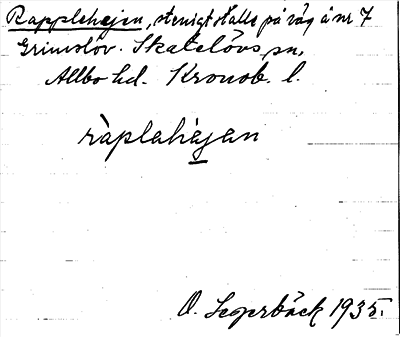 Rapplehejen, stenigt ställe på väg å nr 7
Grimslöv. Skatelövs sn,
Allbo hd. Kronob. l.
ràplahàjan
O. Segerbäck 1935.